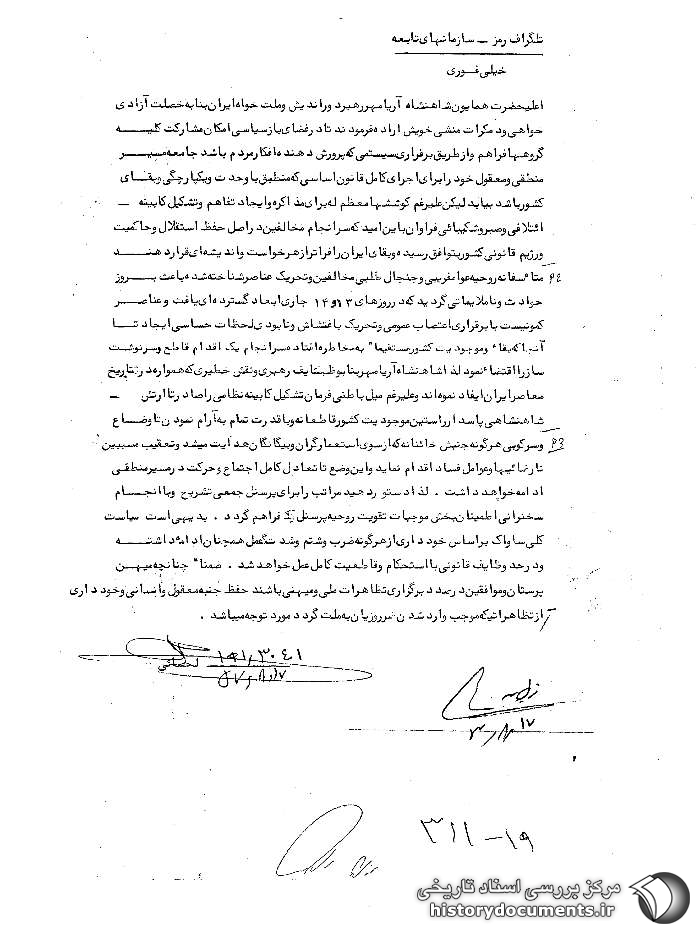 تلگراف رمز ــ سازمانهای تابعه
خیلی فوری
اعلیحضرت همایون شاهنشاه آریامهر رهبر دوراندیش و ملت خواه ایران بنا به خصلت آزادی
خواهی و دمکرات منشی خویش اراده فرمودند تا در فضای باز سیاسی امکان مشارکت کلیه
گروهها فراهم و از طریق برقراری سیستمی که پرورش دهنده افکار مردم باشد جامعه مسیر
منطقی و معقول خود را برای اجرای کامل قانون اساسی که منطبق با وحدت و یکپارچگی و بقای
کشور باشد بیابد لیکن علیرغم کوششهای معظم له برای مذاکره و ایجاد تفاهم و تشکیل کابینه ــ
ائتلافی و صبر و شکیبائی فراوان با این امید که سرانجام مخالفین در اصل حفظ استقلال و حاکمیت
و رژیم قانونی کشور بتوافق رسیده و بقای ایران را فراتر از هر خواست و اندیشه‌ای قرار دهند
متاٴسفانه روحیه عوامفریبی و جنجال طلبی مخالفین و تحریک عناصر شناخته شده باعث بروز
حوادث و ناملایماتی گردید که در روزهای ۱۳ و ۱۴ جاری ابعاد گسترده‌ای یافت و عناصر
کمونیست با برقراری اعتصاب عمومی و تحریک با غتشاش و نابودی لحظات حساسی ایجاد تا
آنجا که بقاٴ و موجودیت کشور مستقیما" به مخاطره افتاده سرانجام یک اقدام قاطع و سرنوشت
ساز را اقتضاٴ نمود لذا شاهنشاه آریامهر بنا بوظایف رهبری و نقش خطیری که همواره در تاریخ
معاصر ایران ایفاد نموده‌اند و علیرغم میل باطنی فرمان تشکیل کابینه نظامی را صادر تا ارتش ــ
شاهنشاهی پاسدار راستین موجودیت کشور قاطعانه و با قدرت تمام به آرام نمودن اوضاع
و سرکوبی هرگونه جنبش خائنانه که از سوی استعمارگران و بیگانگان هدایت میشد و تعقیب مسببین
نارضائیها و عوامل فساد اقدام نماید و این وضع تا تعادل کامل اجتماع و حرکت در مسیر منطقی
ادامه خواهد داشت . لذا دستور دهید مراتب را برای پرسنل جمعی تشریح و با انجام
سخنرانی اطمینان بخش موجبات تقویت روحیه پرسنل فراهم گردد . بدیهی است سیاست
کلی ساواک بر اساس خودداری از هرگونه ضرب و شتم و شدت عمل همچنان ادامه داشته
و در حد وظایف قانونی با استحکام و قاطعیت کامل عمل خواهد شد . ضمنا" چنانچه میهن
پرستان و موافقین درصدد برگزاری تظاهرات ملی و میهنی باشند حفظ جنبه معقول و انسانی و خودداری
از تظاهراتیکه موجب وارد شدن ضرر و زیان به ملت گردد مورد توجه میباشد .
۳۱۱-۱۹
مرکز بررسی اسناد تاریخی
historydocuments.ir